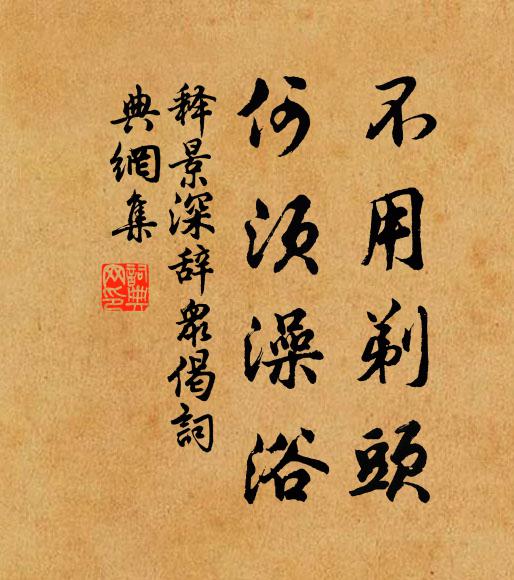 不用剃頭
何須澡浴
释景深辞衆偈詞
典網集
詞典網印